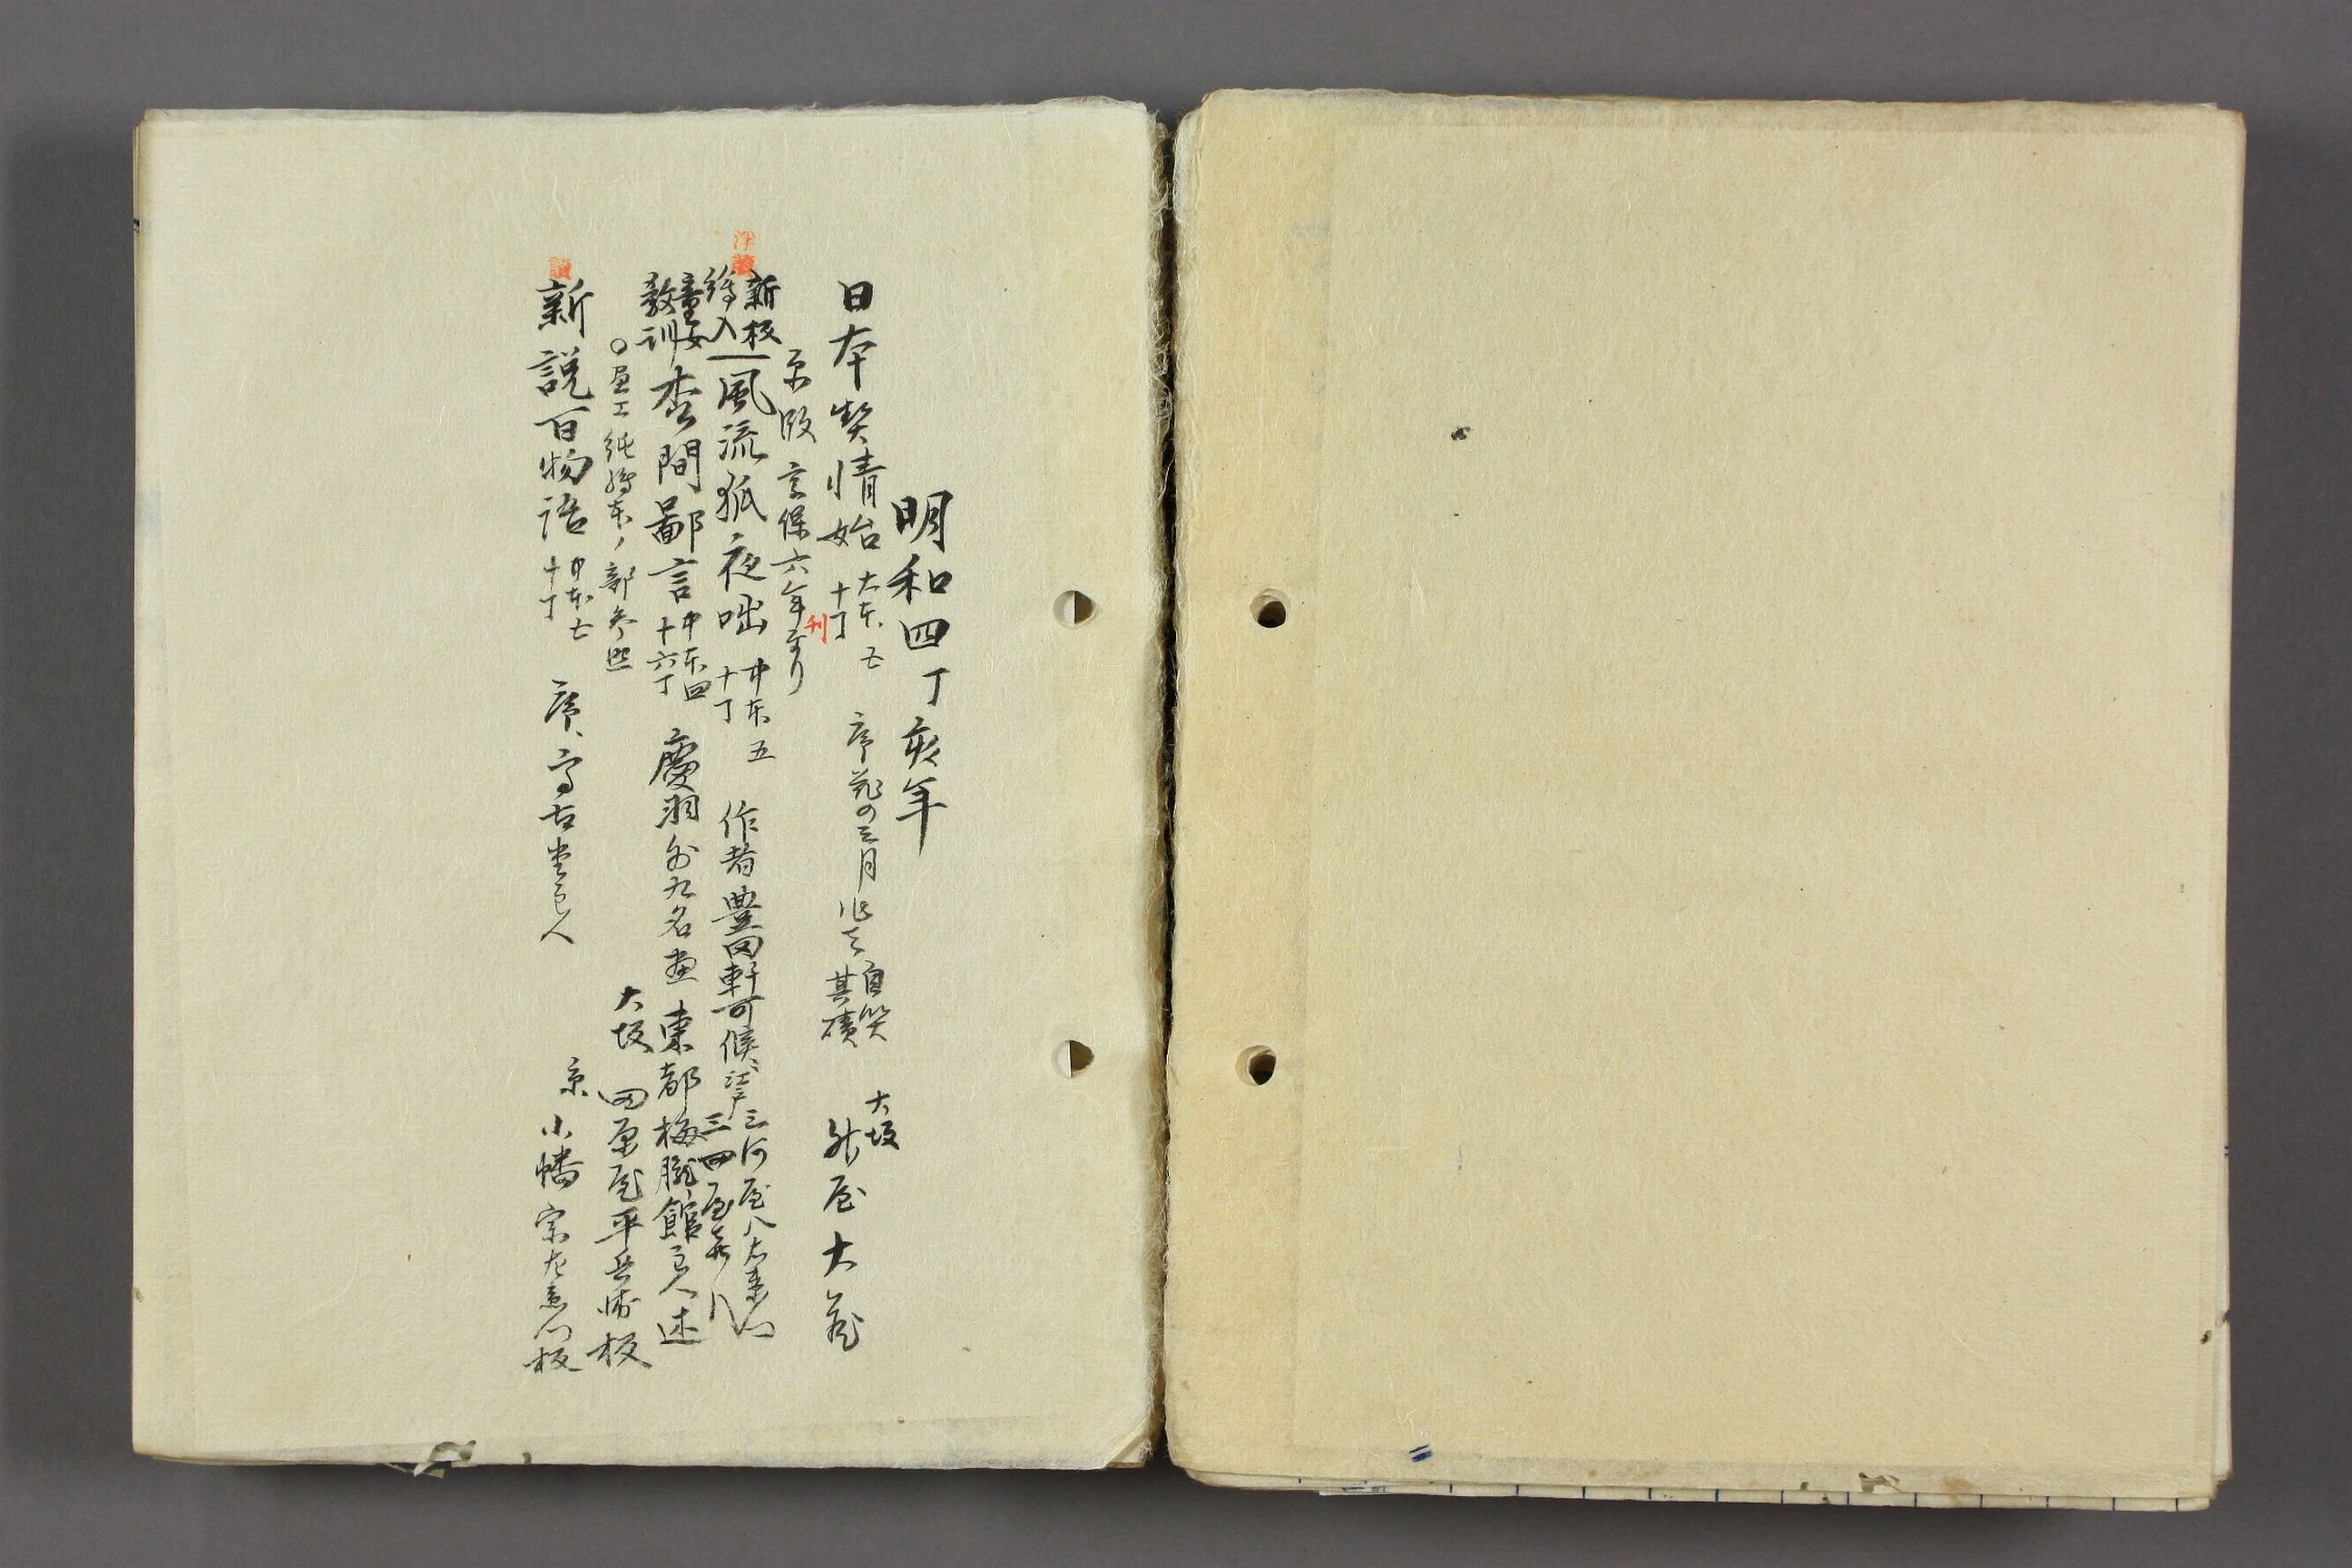 明和四丁亥年
日本契情始 大本五 十丁 序 三月 作者 自笑 其磧 大坂 升屋大蔵
刊
京版 享保六年あり
新板 繪入 風流狐夜咄 中本五 十丁 作者豊田軒可候 江戸 三河屋八右衛門 三四屋喜八
童女 教訓 杢間鄙言 中本四 十六丁 慶羽 外九名画 東都梅朧館主人述
大坂 田原屋平兵衛板
○画工 繪本ノ部参照
新説百物語 中本五 十丁 序、高古堂主人 京 小幡宗左衛門板